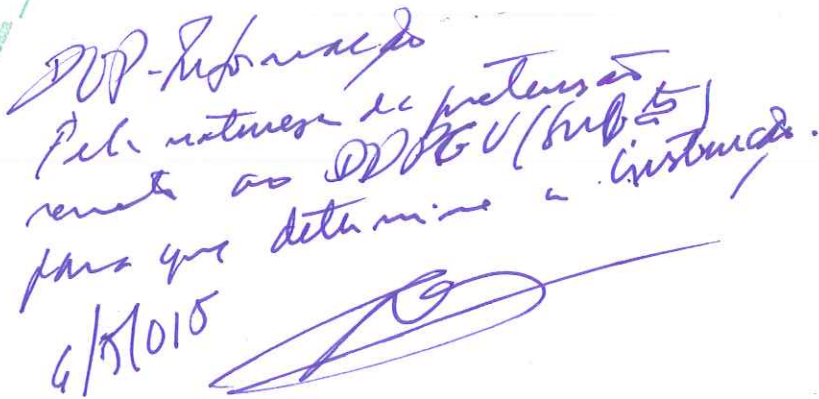 DUP-Informação
Pela natureza da pretensão
remeto ao
para que determine a instrução.